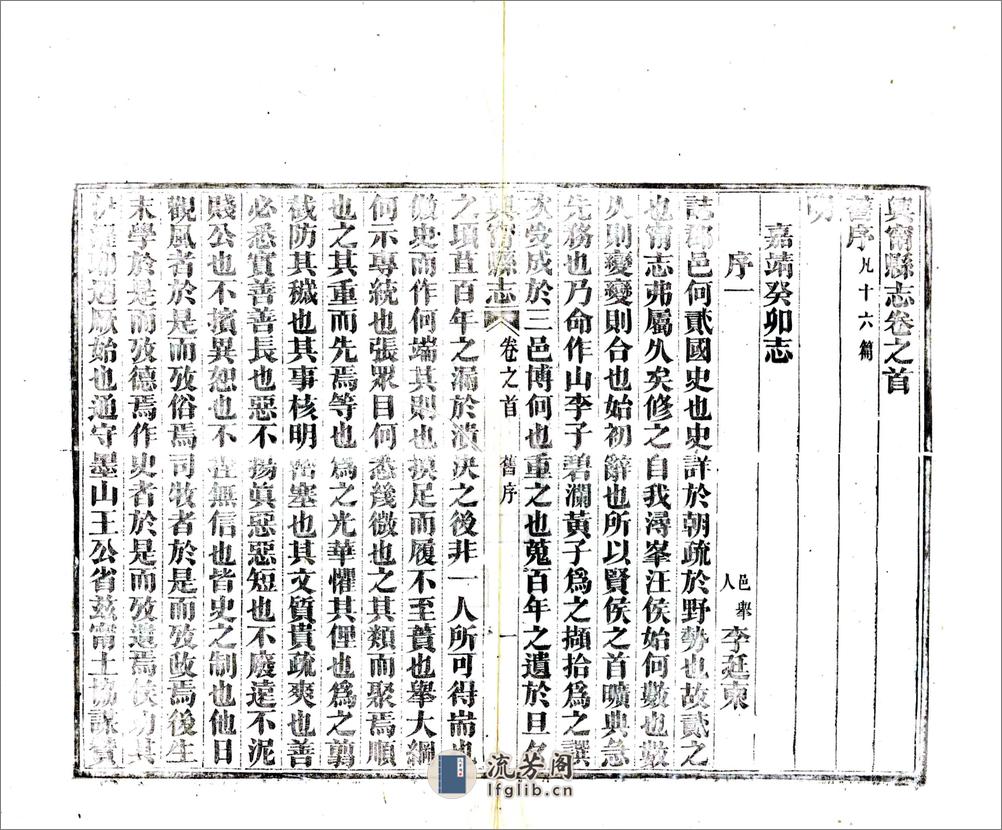 興甯縣志卷之首
舊序凡十六篇
明
嘉靖癸卯志
序一
邑舉人李廷東
誌郡邑何貳國史也史詳於朝疏於野勢也故貳之
也甯志弗屬久矣修之自我潯峯汪侯始何數也數
久則變變則合也始初辭也所以賢侯之首曠典急
先務也乃命作山李子碧瀾黃子為之擷拾為之譔
次爰成於三邑博何也重之也蒐百年之遺於旦夕
興甯縣志 卷之首 舊序 一
之頃苴百年之漏於潰決之後非一人所可得耑也
倣史而作何端其則也揆足而履不至蕢也舉大綱
何示專統也張眾目何悉幾微也之其類而聚焉順
也之其重而先焉等也為之光華懼其俚也為之翦
截防其穢也其事核明 塞也其文質賁疏爽也善
必悉實善善長也惡不揚眞惡惡短也不廢遠不泥
賤公也不擯異恕也不 無信也皆史之制也他日
觀風者於是而攷俗焉司牧者於是而攷政焉後生
末學於是而攷德焉作史者於是而攷遺焉侯功其
廼厥始也通守墨山王公省茲甯土協謀
流芳阁
lfglib.cn